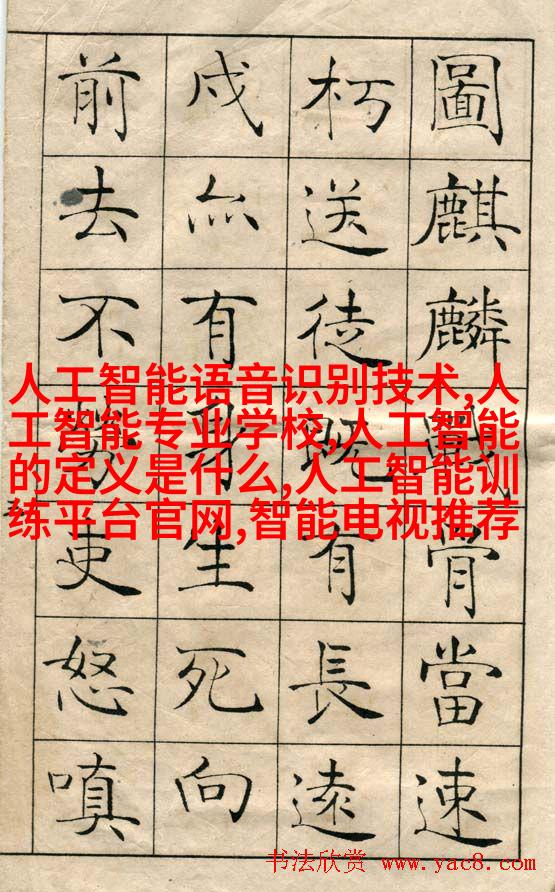 圖麒麟戰骨當速
朽送徒既有長遠
戍亦有身生死向
前去不勞吏怒嗔
人工智能语音识别技术,人
工智能专业学校,人工智能
的定义是什么,人工智能训
练平台官网,智能电视推荐
书法欣赏 www.yac8.com